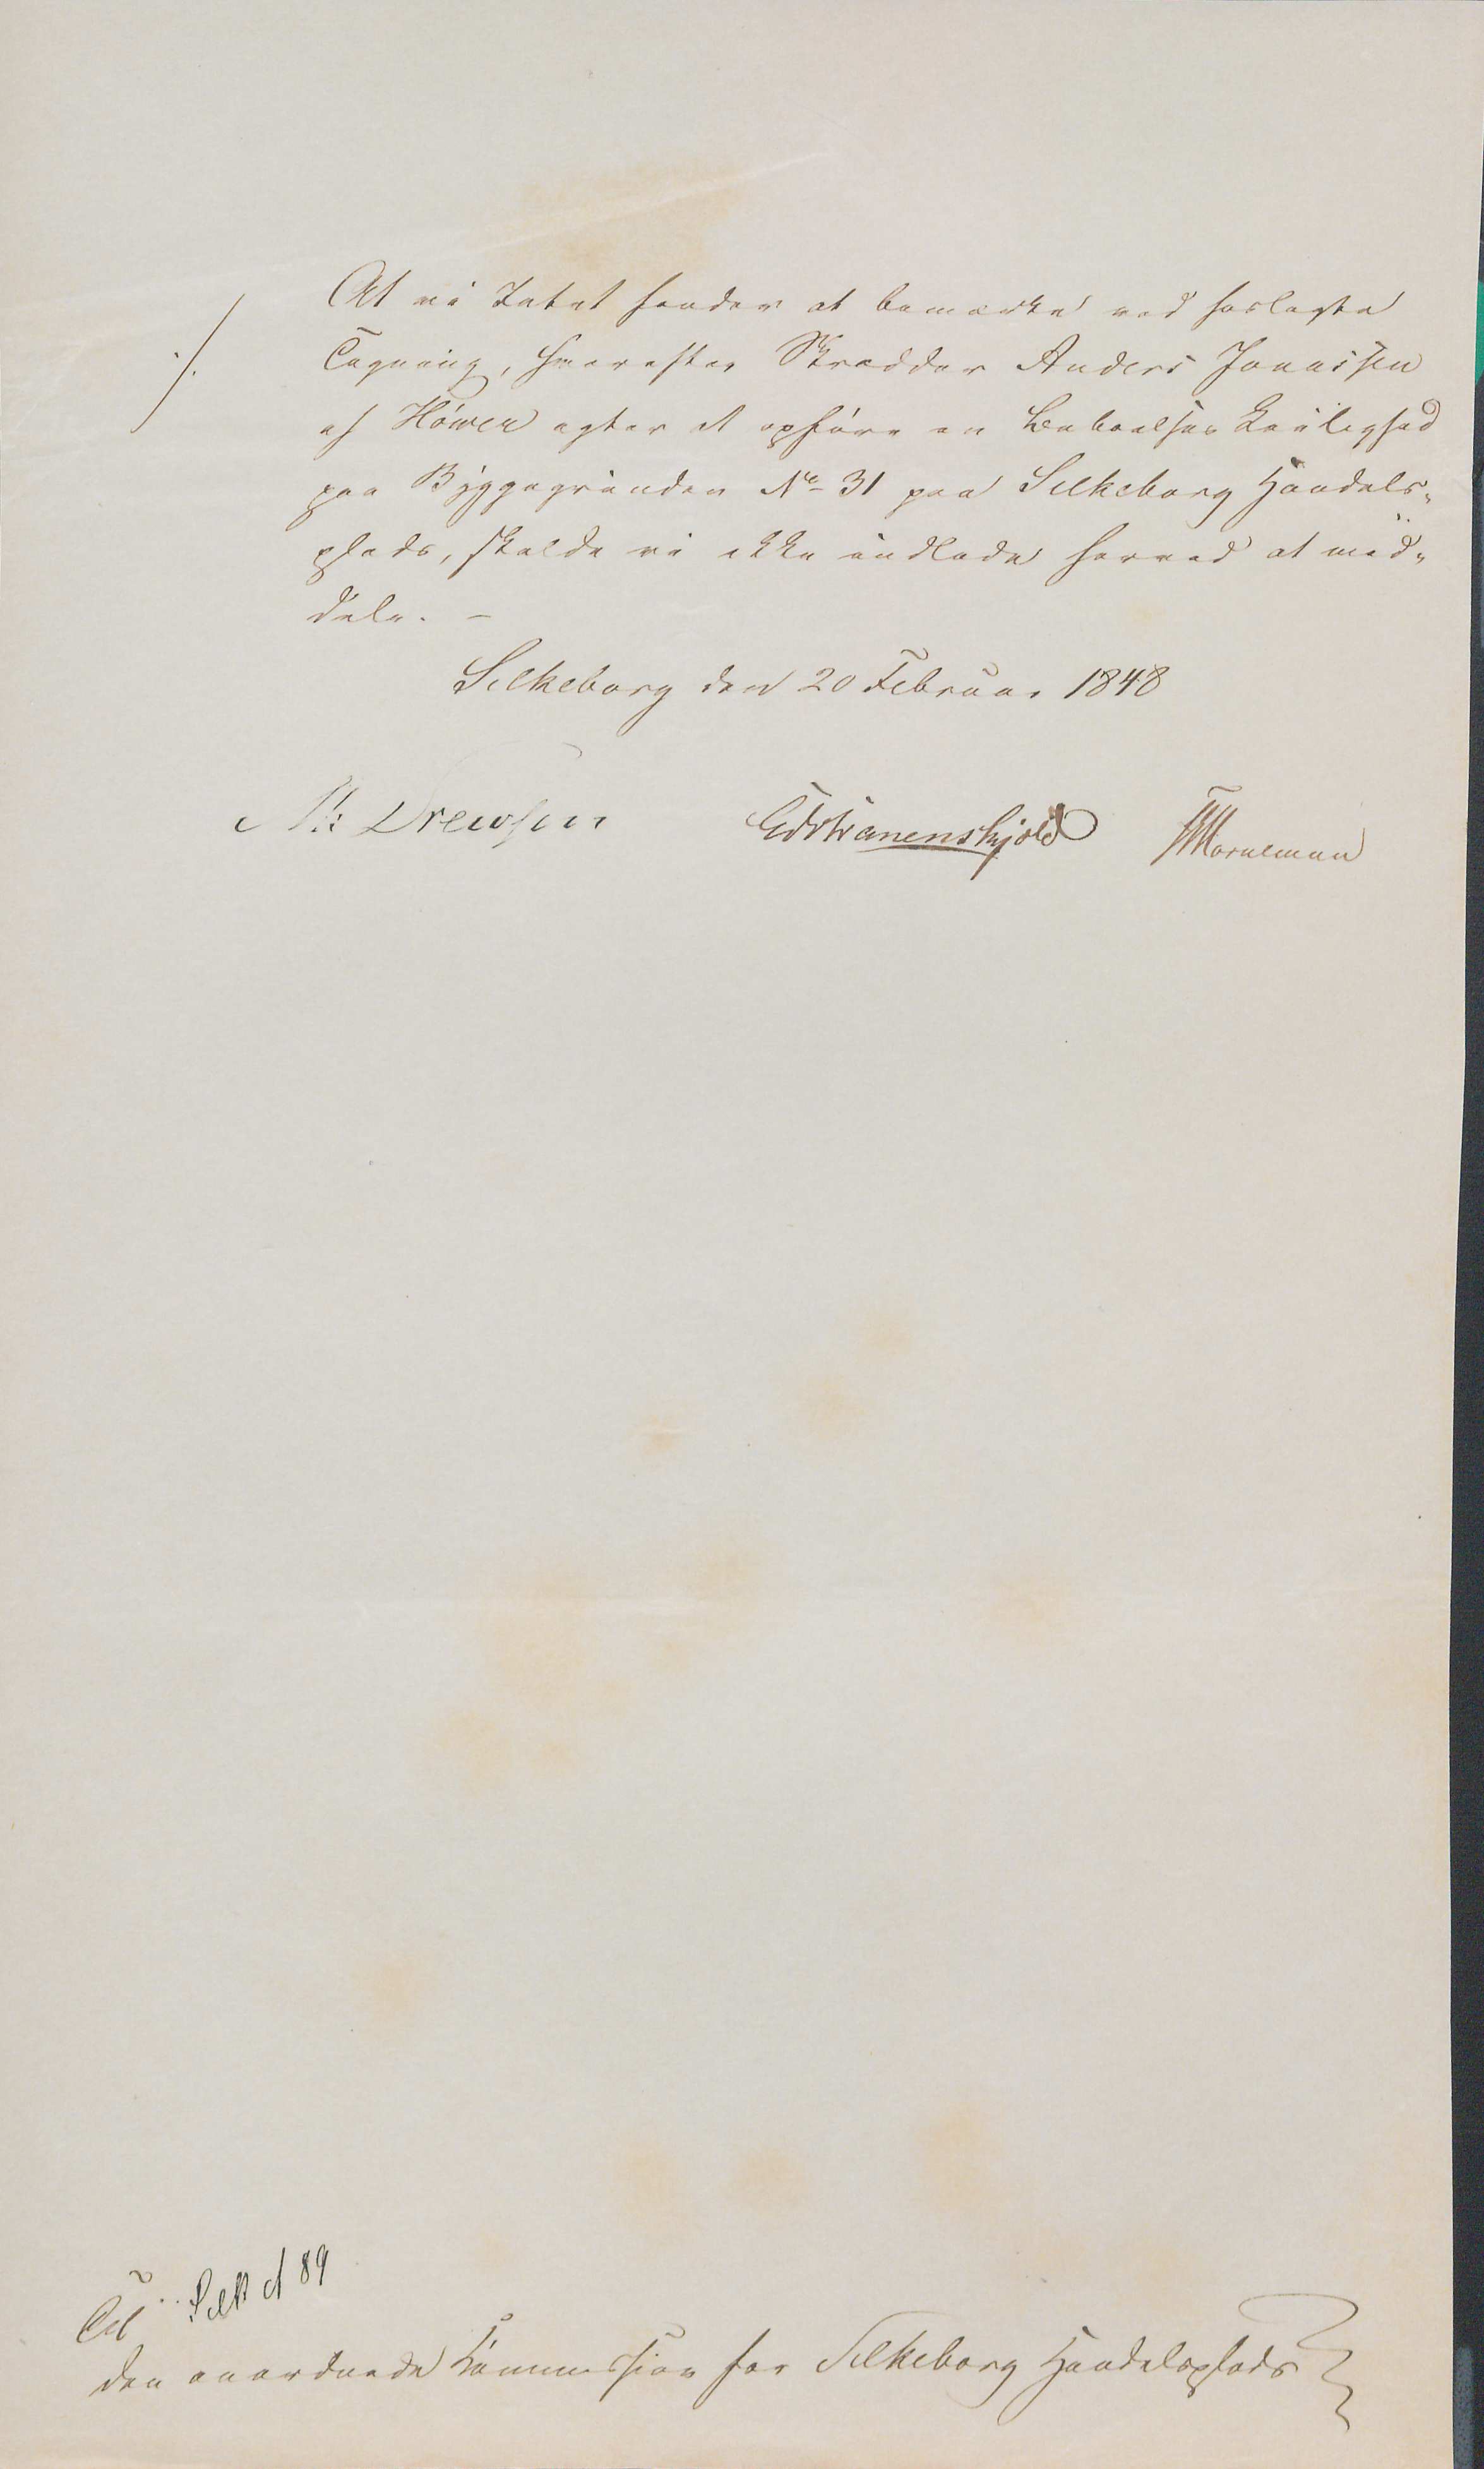 At vi Intet finder at bemærke ved hoslagte
./. Tegning, hvorefter Skrædder Anders Jonassen
af Höwer agter at opföre en Beboelses Leilighed
paa Byggegrunden No 31 paa Silkeborg Handels-
plads, skulde vi ikke undlade herved at med-
dele. -
Silkeborg den 20 Februar 1848
M: Drewsen
Tranenskjold
Til
den anordnede Kommission for Silkeborg Handelsplads